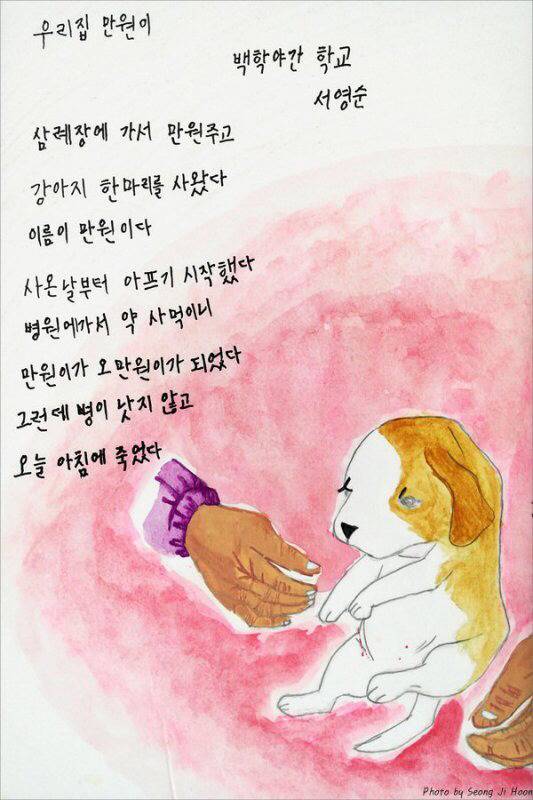 우리집 만원이
백학야간 학교
서영순
삼례장에 가서 만원주고
강아지 한마리를 사왔다
이름이 만원이다
사온날부터 아프기 시작했다
병원에가서 약 사먹이니
만원이가 오만원이가 되었다
그런데 병이 낫지 않고
오늘 아침에 죽었다
Photo by Seong Ji Hoon